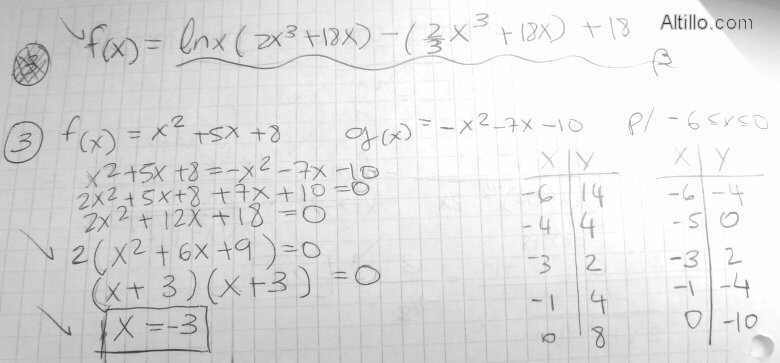 Altillo.com
f(x) = lnx(2x³+18x) - (2/3 x³ + 18x) + 18
③ f(x) = x² + 5x + 8 g(x) = -x² - 7x - 10 p/ -6≤x≤0
x² + 5x + 8 = -x² - 7x - 10
2x² + 5x + 8 + 7x + 10 = 0
2x² + 12x + 18 = 0
2(x² + 6x + 9) = 0
(x + 3)(x + 3) = 0
x = -3
X | Y
-6 | 14
-4 | 4
-3 | 2
-1 | 4
0 | 8
X | Y
-6 | -4
-5 | 0
-3 | 2
-1 | -4
0 | -10